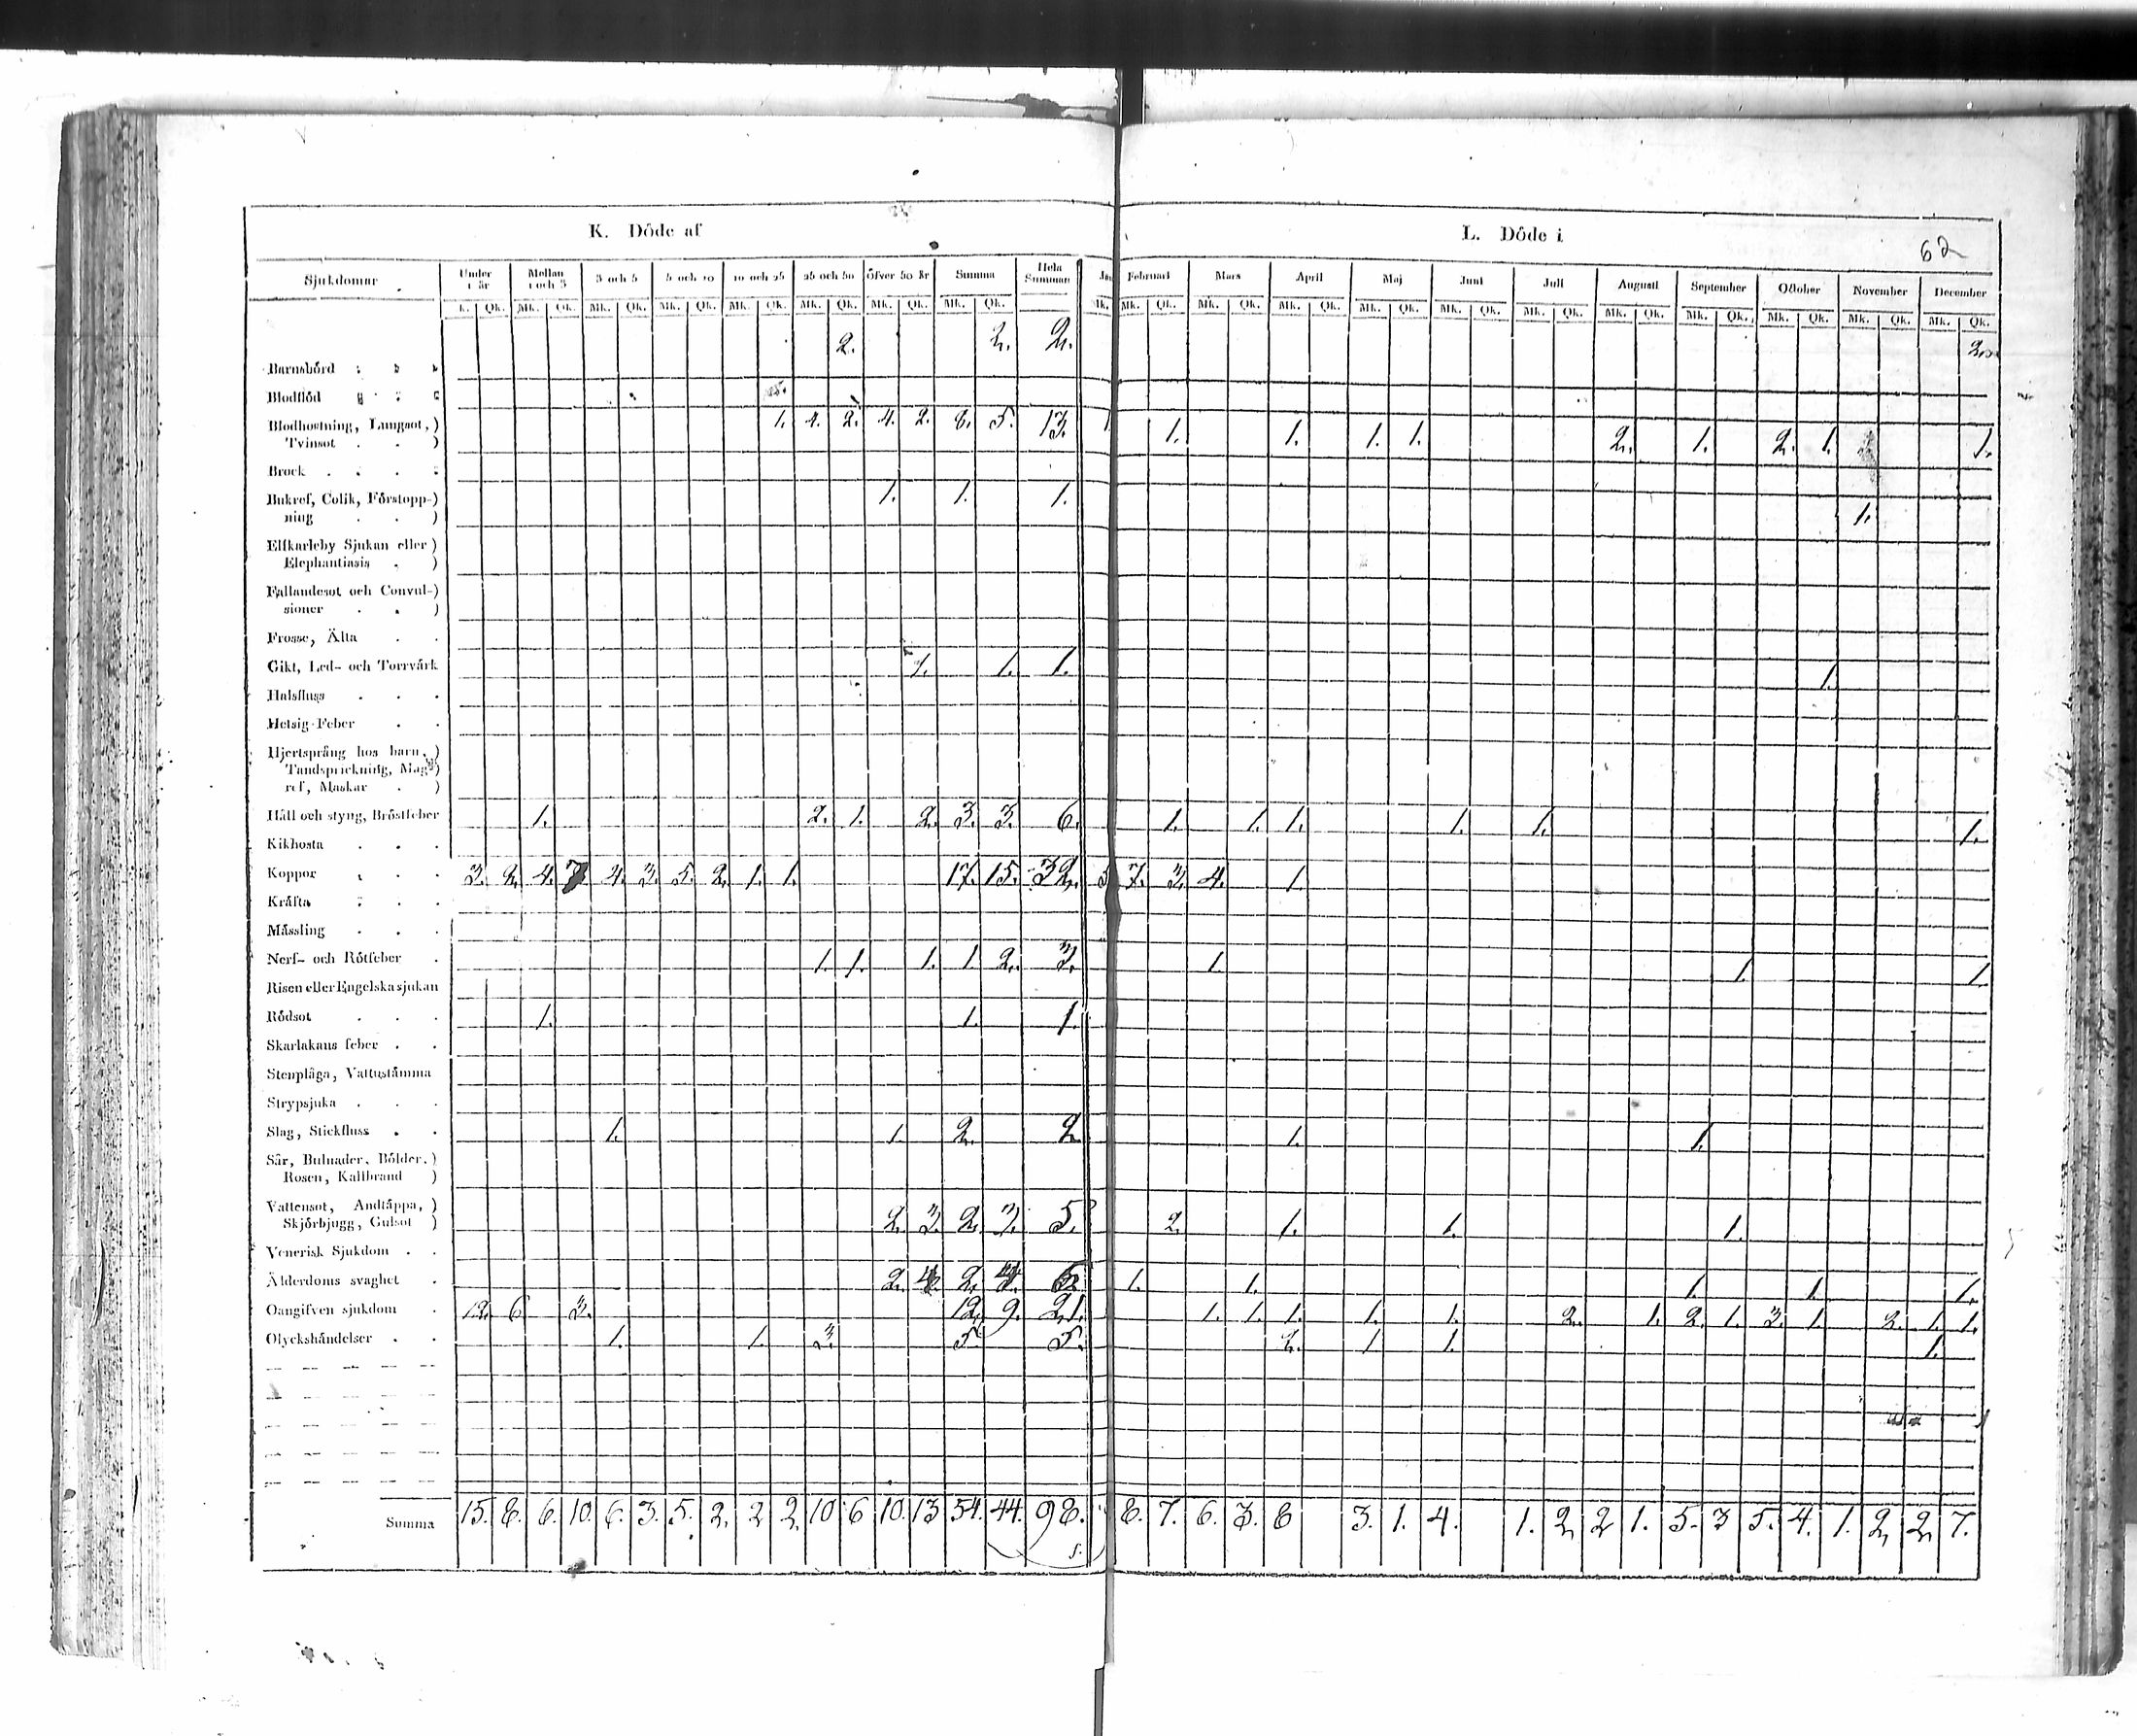 K. Döde af
L. Döde i
62
Sjukdomar Under 1 år Mellan 1 och 3 3 och 5 5 och 10 10 och 25 25 och 50 Öfver 50 år Summa Hela Summan Februari Mars April Maj Juni Juli Augusti September October November December
k. Qk. Mk. Qk. Mk. Qk. Mk. Qk. Mk. Qk. Mk. Qk. Mk. Qk. Mk. Qk. Mk. Mk. Qk. Mk. Qk. Mk. Qk. Mk. Qk. Mk. Qk. Mk. Qk. Mk. Qk. Mk. Qk. Mk. Qk. Mk. Qk. Mk. Qk.
Barnsbörd 2. 2. 2. 2.
Blodflöd
Blodhostning, Lungsot,) 1. 4. 2. 4. 2. 8. 5. 13. 1 1. 1. 1. 1. 2. 1. 2. 1. 1.
Tvinsot . . )
Brock . . . .
Bukref, Colik, Förstopp-) 1. 1. 1. 1.
ning . . )
Elfkarleby Sjukan eller)
Elephantiasis . )
Fallandesot och Convul-)
sioner . . )
Frosse, Älta . .
Gikt, Led- och Torrvärk 1. 1. 1. 1.
Halsfluss . . .
Hetsig Feber . .
Hjertsprång hos barn,)
Tandsprickning, Mag-)
ref, Maskar . )
Håll och styng, Bröstfeber 1. 2. 1. 2. 3. 3. 6. 1. 1. 1. 1. 1. 1.
Kikhosta . . .
Koppor . . . 3. 2. 4. 7 4. 3. 5. 2. 1. 1. 17. 15. 32. 5 7. 3. 4. 1.
Kräfta . . .
Mässling . . .
Nerf- och Rötfeber . 1. 1. 1. 1. 2. 3. 1. 1. 1.
Risen eller Engelska sjukan
Rödsot . . . 1. 1. 1.
Skarlakans feber . .
Stenplåga, Vattustämma
Strypsjuka . . .
Slag, Stickfluss . . 1. 1. 2. 2 1. 1.
Sår, Bulnader, Bölder,)
Rosen, Kallbrand )
Vattensot, Andtäppa, ) 2. 3. 2. 3. 5. 2. 1. 1. 1.
Skjörbjugg, Gulsot )
Venerisk Sjukdom . .
Ålderdoms svaghet . 2. 4. 2. 4. 6 1. 1. 1. 1. 1.
Oangifven sjukdom . 12. 6 3. 12. 9. 21. 1. 1. 1. 1. 1. 2. 1. 2. 1. 3. 1. 2. 1. 1.
Olyckshändelser . . 1. 1. 3. 5. 5. 2. 1 1. 1.
Summa 15. 8. 6. 10. 6. 3. 5. 2. 2 2. 10 6 10. 13 54. 44. 98. 8. 7. 6. 3. 8 3. 1. 4. 1. 2 2 1. 5. 3 5. 4. 1. 2, 2 7.
s.